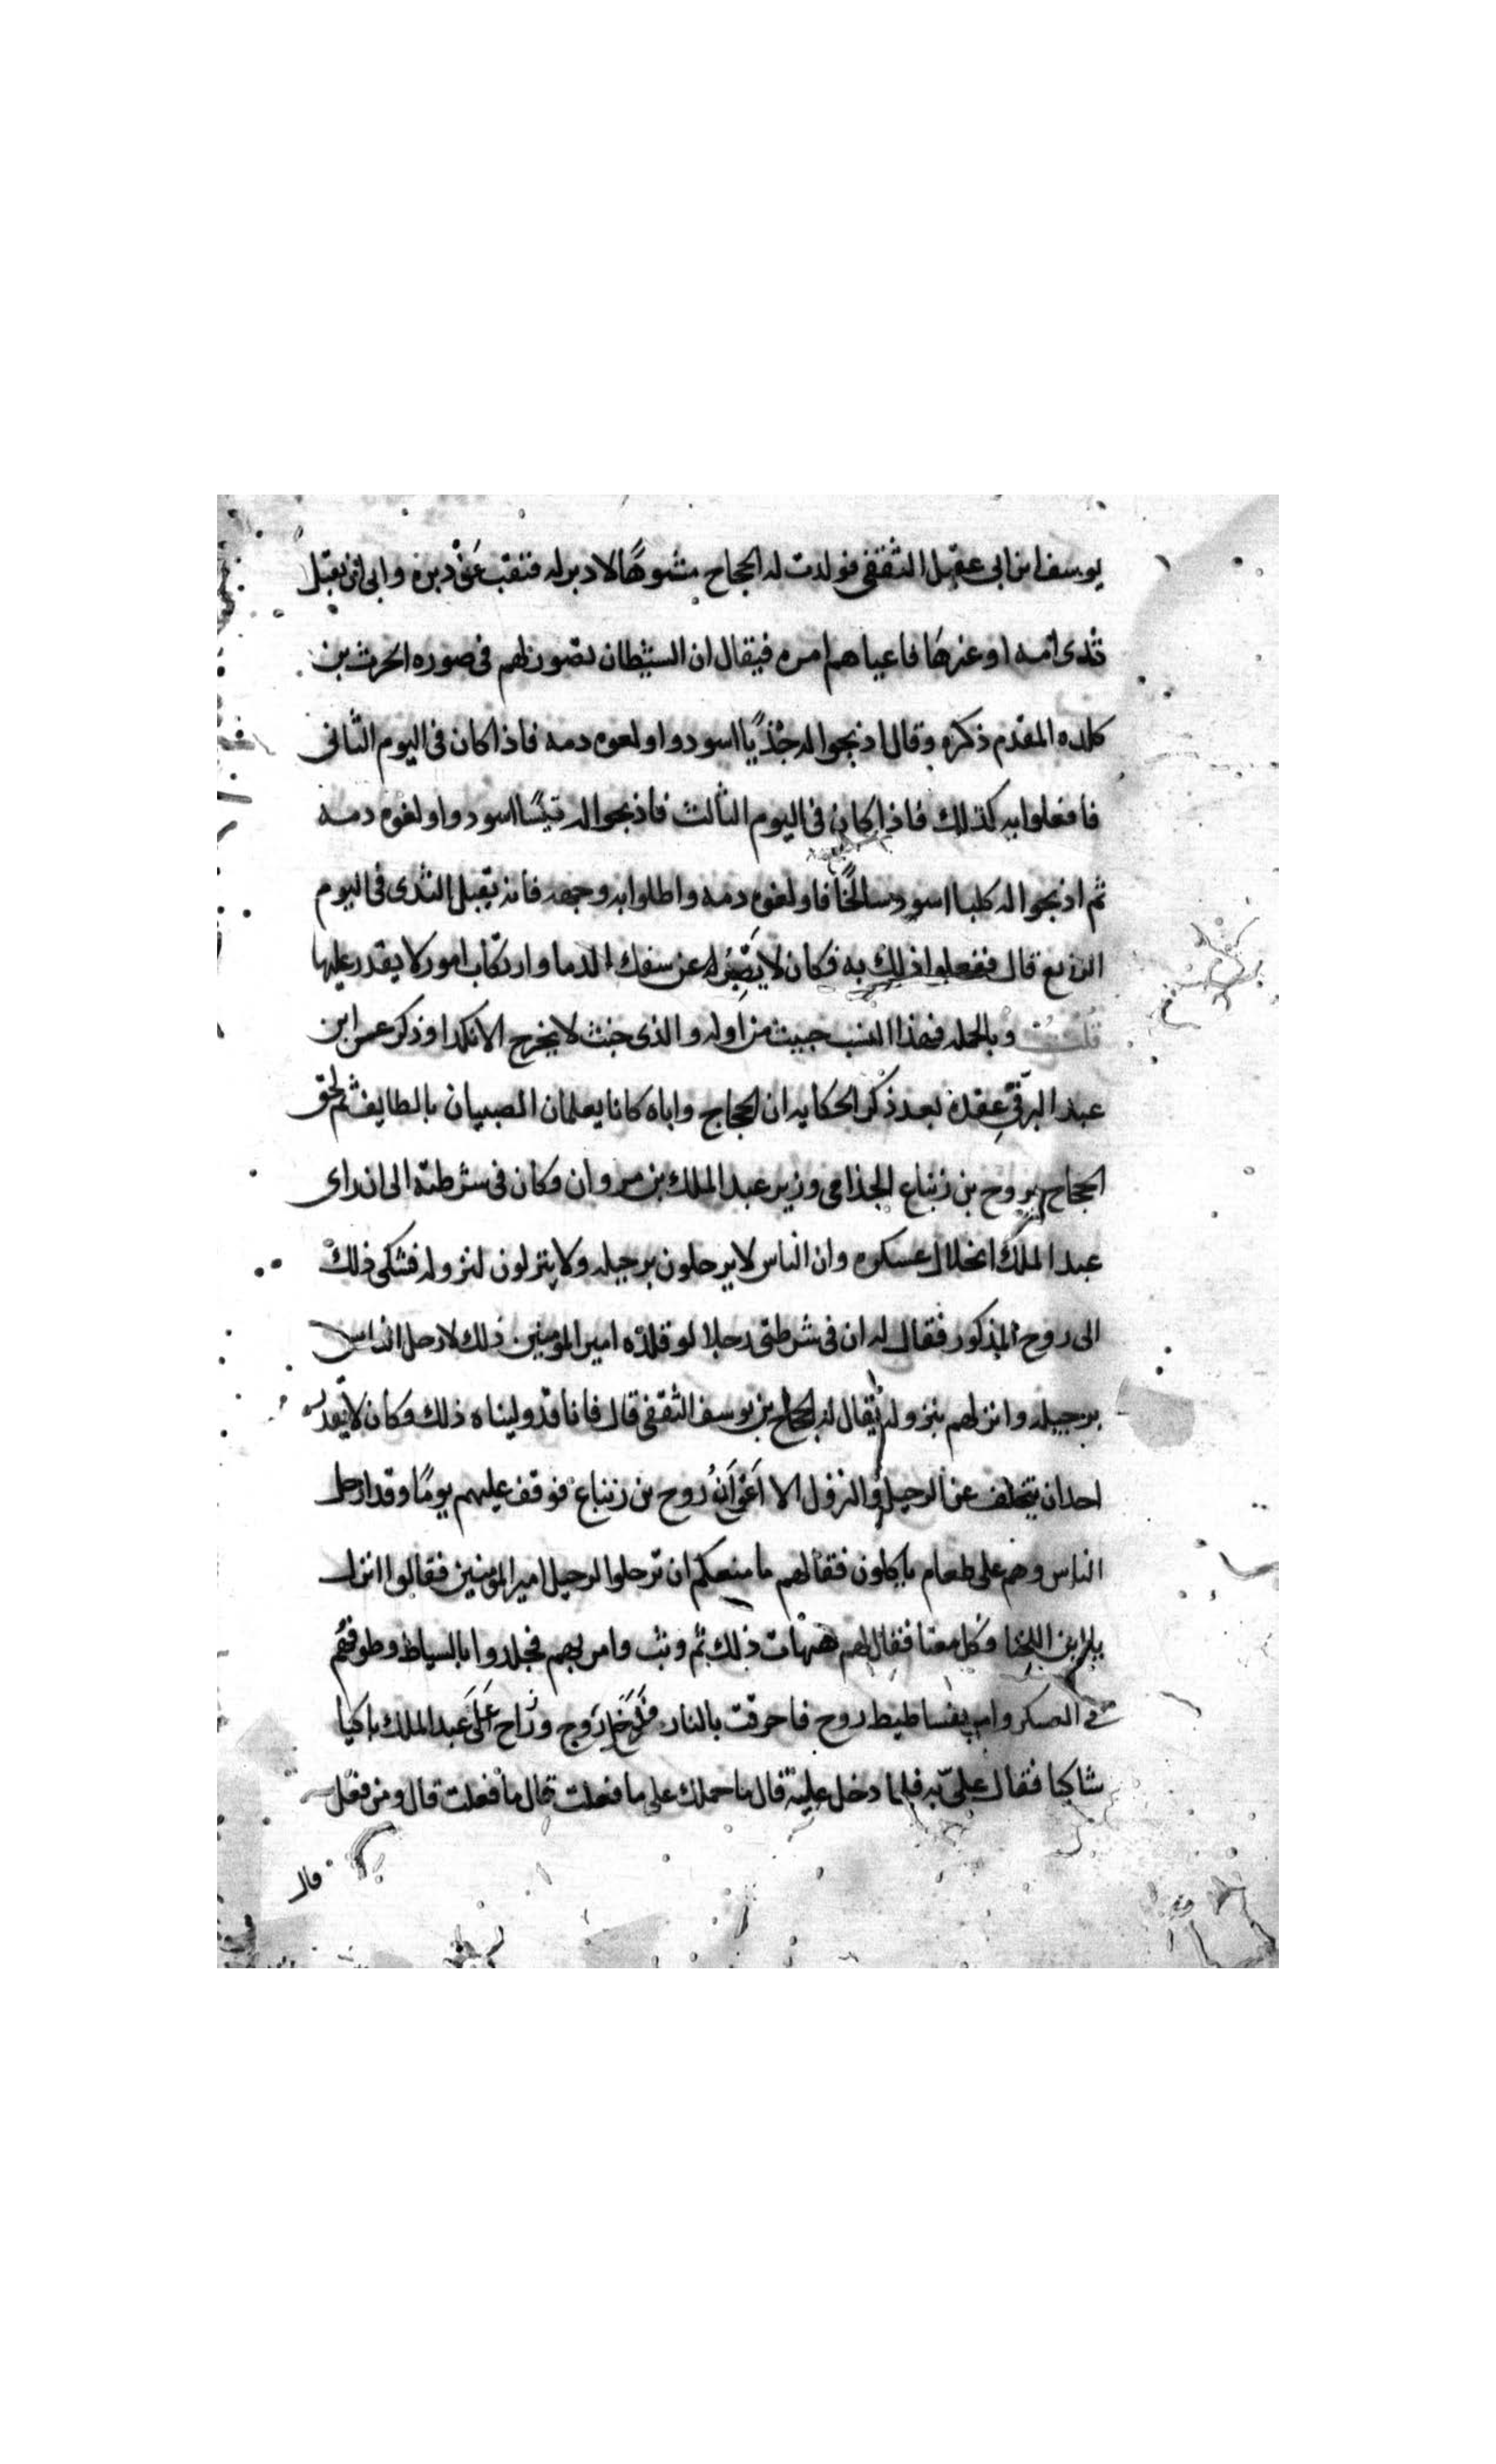 يوسف ابن ابى عقيل الثقفى فولدت له الحجاج مشوهًا لا دبر له فنقب عَنْ دبره وابى ان يقبل
ثدى امه او غيرها فاعياهم امره فيقال ان الشيطان تصور لهم فى صوره الحرث بن
كلده المقدم ذكره وقال اذبحوا له جذيًا اسود واولغوه دمه فاذا كان فى اليوم الثانى
فافعلوا به كذلك فاذا كان فى اليوم الثالث فاذبحوا له تيسًا اسود واولغوه دمه
ثم اذبحوا له كلبا اسود سالخًا فاولغوه دمه واطلوا به وجهه فانه يقبل الثدى فى اليوم
الرابع قال ففعلوا ذلك به فكان لا يصبر عن سفك الدما وارتكاب امور لا يقدر عليها
قلت وبالجمله فهذا النسب خبيث من اوله والذى خبث لا يخرج الا نكدا وذكر عن ابن
عبد البر فى عقده بعد ذكر الحكايه ان الحجاج واباه كانا يعلمان الصبيان بالطايف ثم لحق
الحجاج بروح بن زنباع الجذامى وزير عبد الملك بن مروان وكان فى شرطته الى ان راى
عبد الملك انحلال عسكره وان الناس لا يرحلون برحيله ولا ينزلون لنزوله فشكى ذلك
الى روح المذكور فقال له ان فى شرطتى رجلا لو قلده امير المؤمنين ذلك لارحل الناس
برحيله وانزلهم بنزوله يقال له الحجاج بن يوسف الثقفى قال فانا قد وليناه ذلك وكان لا يقدر
احد ان يتخلف عن الرحيل والنزول الا اعوان روح بن زنباع فوقف عليهم يومًا وقد ارحل
الناس وهم على طعام ياكلون فقال لهم ما منعكم ان ترحلوا لرحيل امير المؤمنين فقالوا انزل
يا ابن اللخنا وكل معنا فقال لهم هيهات ذلك ثم وثب وامر بهم فجلدوا بالسياط وطوفهم
فى العسكر وامر بفساطيط روح فاحرقت بالنار روح وراح على عبد الملك باكيا
شاكيا فقال علىّ به فلما دخل عليه قال ما حملك على ما فعلت قال ما فعلت قال ومن فعل
قال